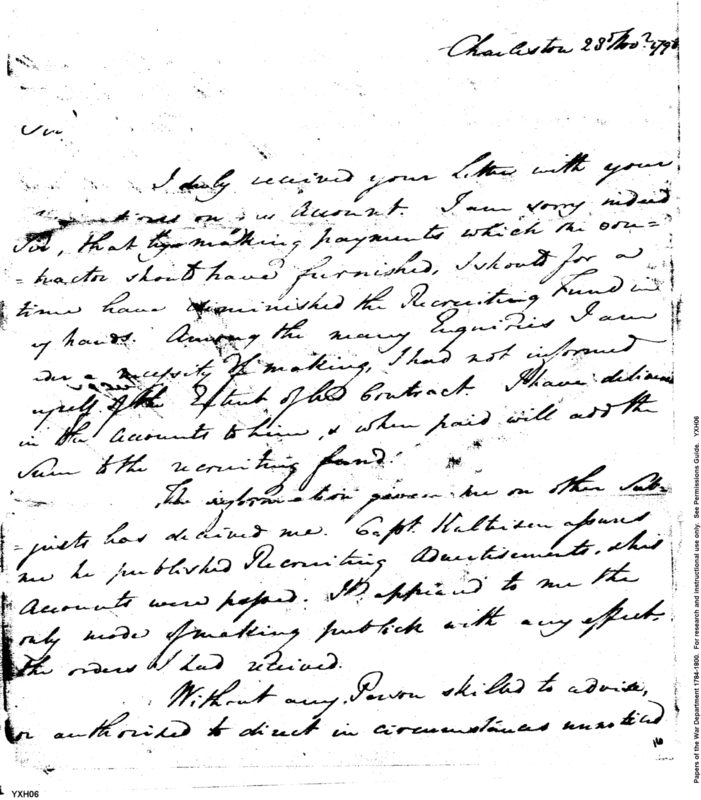 Charleston 23d Novr. 179
Sir
I duly received your Letter with your
on Account. I am sorry indeed
Sir, that by making payments which the con=
=tractor should have furnished, I should for a
time have diminished the Recruiting Fund in
my hands. Among the many Enquiries I am
necessity of making, I had not informed
myself of the Extent of the Contract. I have deliver
in the Accounts to him, & when paid will add the
Sum to the recruiting fund.
The information given me on other Sub=
=jects has deceived me. Capt. Kalteisen assures
me he published Recruiting Advertisements, & his
Accounts were passed. It appeared to me the
only mode of making publick with any effect.
the orders I had received.
Without any Person skilled to advise,
or authorized to direct in circumstances unnoticed
16
YXH06
Papers of the War Department 1784-1800. For research and instructional use only. See Permissions Guide. YXH06